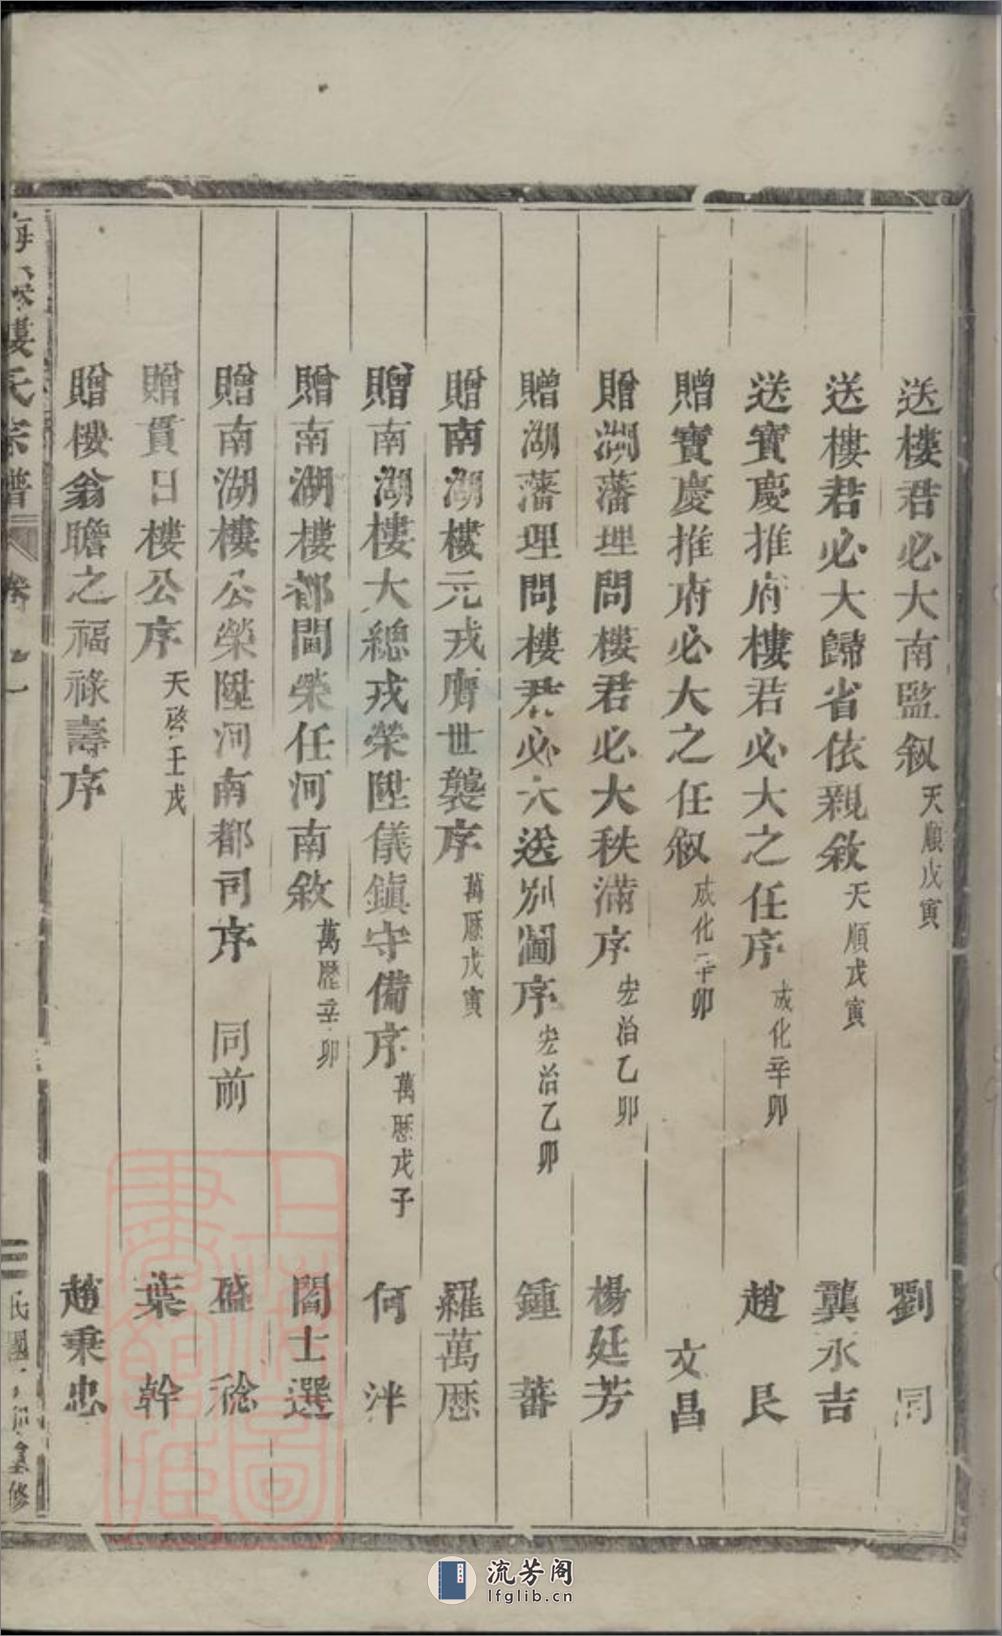 送樓君必大南監叙 天順戊寅 劉同
送樓君必大歸省依親敘 天順戊寅 龔永吉
送寶慶推府樓君必大之任序 成化辛卯 趙良
贈寶慶推府必大之任叙 成化辛卯 文昌
贈湖藩理問樓君必大秩滿序 宏治乙卯 楊廷芳
贈湖藩理問樓君必大送別圖序 宏治乙卯 鍾蕃
贈南湖樓元戎膺世襲序 萬歷戊寅 羅萬歷
贈南湖樓大總戎榮陞儀鎭守備序 萬歷戊子 何泮
贈南湖樓都閫榮任河南敘 萬歷辛卯 閻士選
贈南湖樓公榮陞河南都司序 同前 盛稔
贈貫日樓公序 天啓壬戌 葉幹
贈樓翁瞻之福祿壽序 趙秉忠
樓氏宗譜 卷
修
流芳阁
lfglib.cn